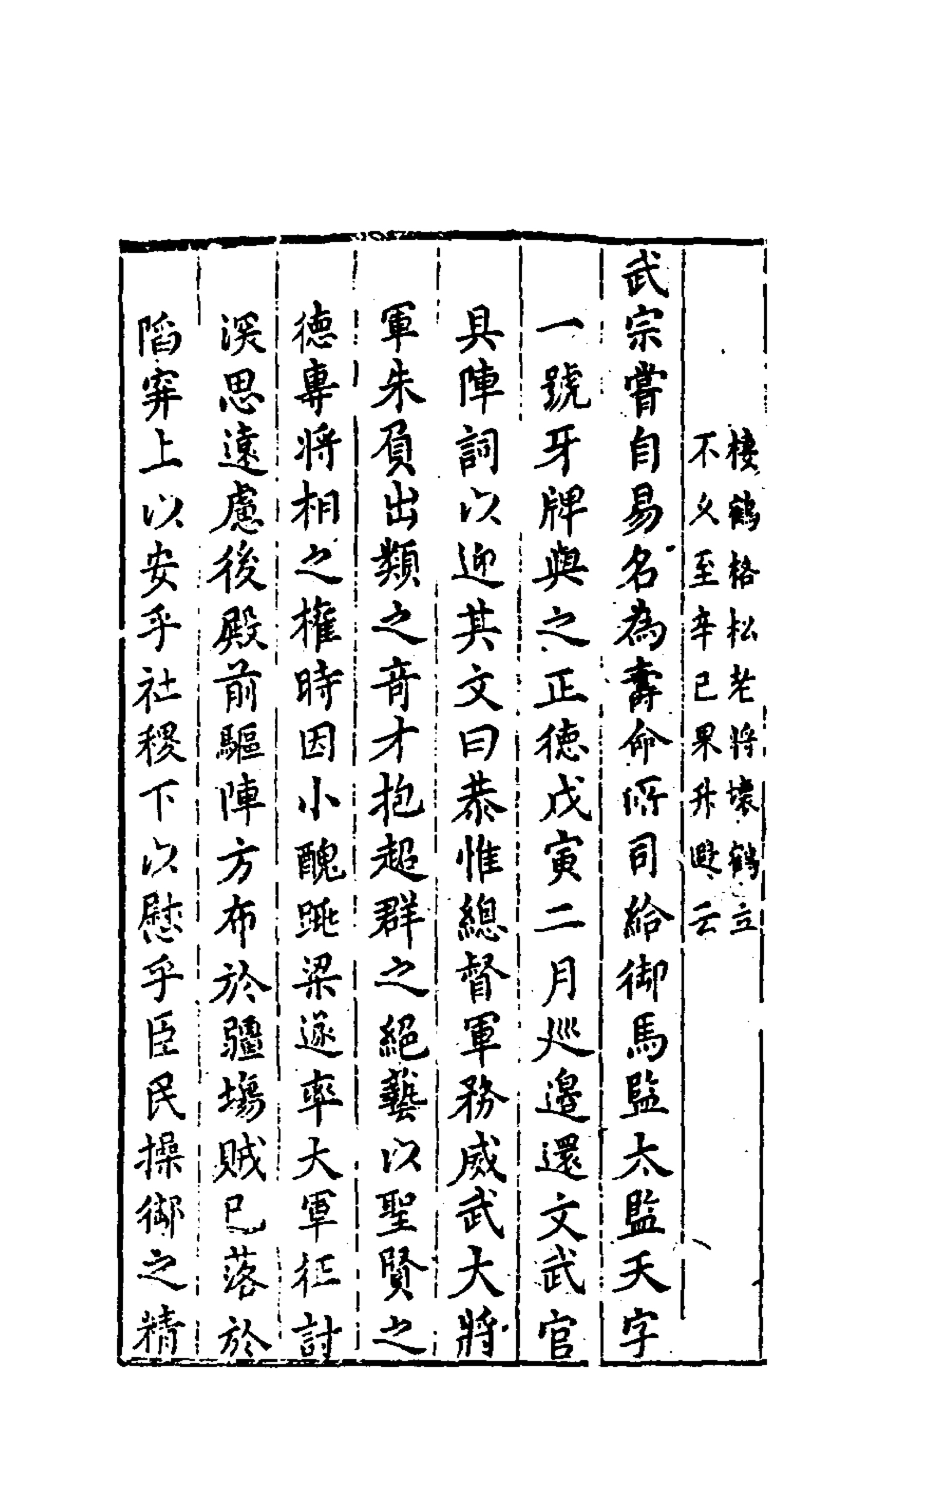 棲鶴格松老将壞鶴立
不久至辛已果升遐云
武宗嘗自易名為壽命所司給御馬監太監天字
一號牙牌與之正德戊寅二月巡邉還文武官
具陣詞以迎其文曰恭惟總督軍務威武大將
軍朱負出類之竒才抱超群之絕藝以聖賢之
德專將相之權時因小醜跳梁遂率大軍征討
深思遠慮後殿前驅陣方布於疆塲賊已落於
陷穽上以安乎社稷下以慰乎臣民操御之精